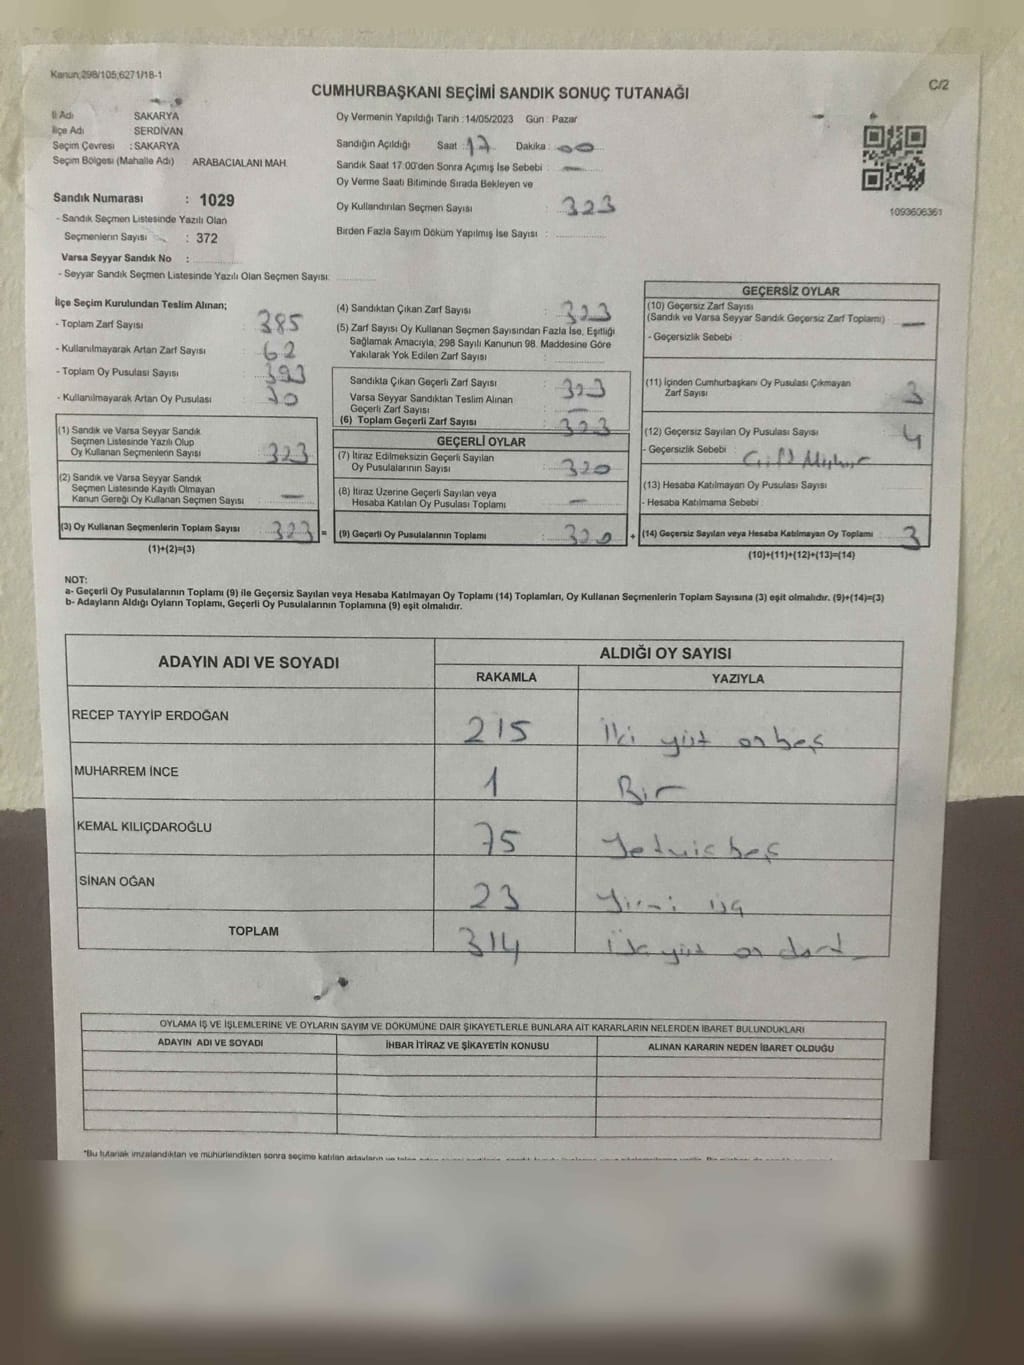 Kanun;298/105;6271/18-1
C/2
CUMHURBAŞKANI SEÇİMİ SANDIK SONUÇ TUTANAĞI
İl Adı SAKARYA
İlçe Adı SERDİVAN
Seçim Çevresi : SAKARYA
Seçim Bölgesi (Mahalle Adı) ARABACIALANI MAH.
Sandık Numarası : 1029
- Sandık Seçmen Listesinde Yazılı Olan
Seçmenlerin Sayısı : 372
Varsa Seyyar Sandık No :
- Seyyar Sandık Seçmen Listesinde Yazılı Olan Seçmen Sayısı:
Oy Vermenin Yapıldığı Tarih :14/05/2023 Gün : Pazar
Sandığın Açıldığı Saat : 17 Dakika : 00
Sandık Saat 17:00'den Sonra Açımış İse Sebebi : —
Oy Verme Saati Bitiminde Sırada Bekleyen ve
Oy Kullandırılan Seçmen Sayısı : 323
Birden Fazla Sayım Döküm Yapılmış İse Sayısı :
1093606361
İlçe Seçim Kurulundan Teslim Alınan;
- Toplam Zarf Sayısı : 385
- Kullanılmayarak Artan Zarf Sayısı : 62
- Toplam Oy Pusulası Sayısı : 393
- Kullanılmayarak Artan Oy Pusulası : 70
(1) Sandık ve Varsa Seyyar Sandık
Seçmen Listesinde Yazılı Olup
Oy Kullanan Seçmenlerin Sayısı : 323
(2) Sandık ve Varsa Seyyar Sandık
Seçmen Listesinde Kayıtlı Olmayan
Kanun Gereği Oy Kullanan Seçmen Sayısı : —
(3) Oy Kullanan Seçmenlerin Toplam Sayısı : 323 =
(1)+(2)=(3)
(4) Sandıktan Çıkan Zarf Sayısı : 323
(5) Zarf Sayısı Oy Kullanan Seçmen Sayısından Fazla İse, Eşitliği
Sağlamak Amacıyla, 298 Sayılı Kanunun 98. Maddesine Göre
Yakılarak Yok Edilen Zarf Sayısı :
Sandıkta Çıkan Geçerli Zarf Sayısı : 323
Varsa Seyyar Sandıktan Teslim Alınan
Geçerli Zarf Sayısı : —
(6) Toplam Geçerli Zarf Sayısı : 323
GEÇERLİ OYLAR
(7) İtiraz Edilmeksizin Geçerli Sayılan
Oy Pusulalarının Sayısı : 320
(8) İtiraz Üzerine Geçerli Sayılan veya
Hesaba Katılan Oy Pusulası Toplamı : —
(9) Geçerli Oy Pusulalarının Toplamı : 320 +
GEÇERSİZ OYLAR
(10) Geçersiz Zarf Sayısı
(Sandık ve Varsa Seyyar Sandık Geçersiz Zarf Toplamı) : —
- Geçersizlik Sebebi :
(11) İçinden Cumhurbaşkanı Oy Pusulası Çıkmayan
Zarf Sayısı : 3
(12) Geçersiz Sayılan Oy Pusulası Sayısı : 4
- Geçersizlik Sebebi : Çift Mühür
(13) Hesaba Katılmayan Oy Pusulası Sayısı :
- Hesaba Katılmama Sebebi :
(14) Geçersiz Sayılan veya Hesaba Katılmayan Oy Toplamı : 3
(10)+(11)+(12)+(13)=(14)
NOT:
a- Geçerli Oy Pusulalarının Toplamı (9) ile Geçersiz Sayılan veya Hesaba Katılmayan Oy Toplamı (14) Toplamları, Oy Kullanan Seçmenlerin Toplam Sayısına (3) eşit olmalıdır. (9)+(14)=(3)
b- Adayların Aldığı Oyların Toplamı, Geçerli Oy Pusulalarının Toplamına (9) eşit olmalıdır.
ADAYIN ADI VE SOYADI ALDIĞI OY SAYISI
RAKAMLA YAZIYLA
RECEP TAYYİP ERDOĞAN 215 İki yüz on beş
MUHARREM İNCE 1 Bir
KEMAL KILIÇDAROĞLU 75 Yetmiş beş
SİNAN OĞAN 23 Yirmi üç
TOPLAM 314 üç yüz on dört
OYLAMA İŞ VE İŞLEMLERİNE VE OYLARIN SAYIM VE DÖKÜMÜNE DAİR ŞİKAYETLERLE BUNLARA AİT KARARLARIN NELERDEN İBARET BULUNDUKLARI
ADAYIN ADI VE SOYADI İHBAR İTİRAZ VE ŞİKAYETİN KONUSU ALINAN KARARIN NEDEN İBARET OLDUĞU
*Bu tutanak imzalandıktan ve mühürlendikten sonra seçime katılan adayların